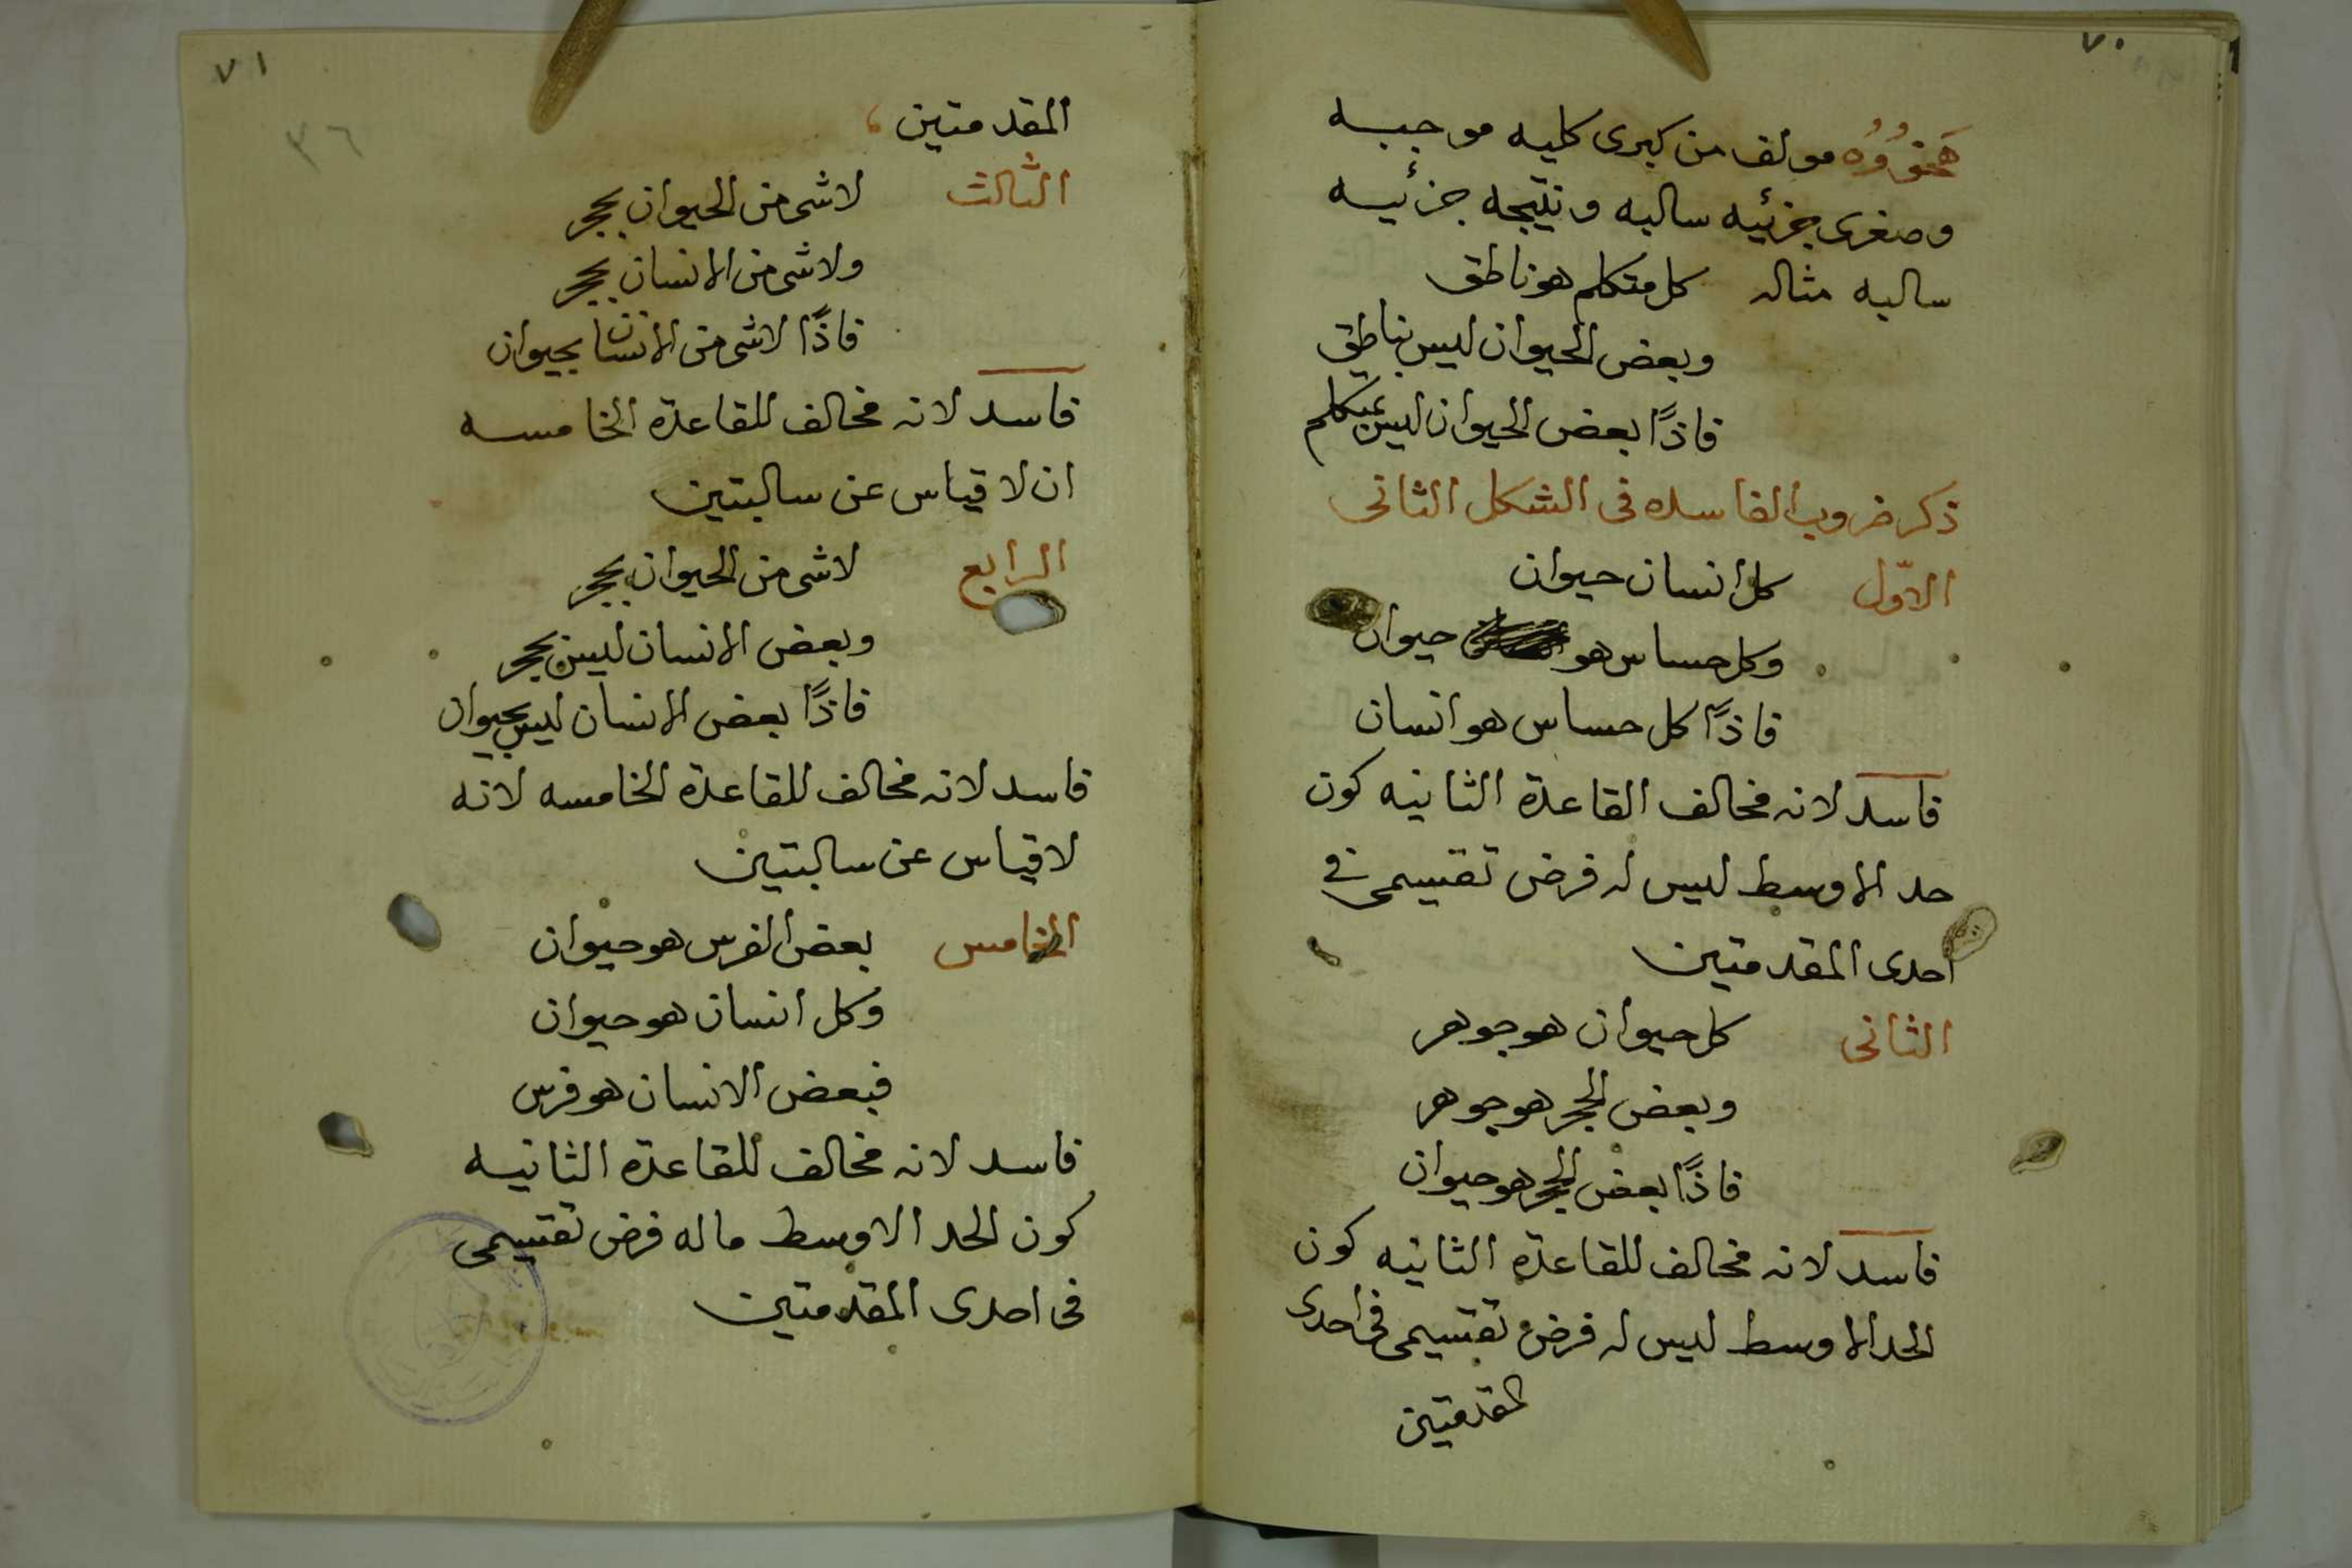 ٧٠
مولف من كبرى كليه موجبه
وصغرى جزئيه سالبه ونتيجه جزئيه
سالبه مثاله كل متكلم هو ناطق
وبعض الحيوان ليس بناطق
فاذًا بعض الحيوان ليس بمتكلم
ذكر ضروب الفاسده فى الشكل الثانى
الاوّل كل انسان حيوان
وكل حساس هو حيوان
فاذًا كل حساس هو انسان
فاسد لانه مخالف القاعدة الثانيه كون
حد الاوسط ليس له فرض تقسيمى فى
احدى المقدمتين
الثانى كل حيوان هو جوهر
وبعض الحجر هو جوهر
فاذًا بعض الحجر هو حيوان
فاسد لانه مخالف للقاعدة الثانيه كون
الحد الاوسط ليس له فرض تقسيمى فى احدى
المقدمتين
٧١
٣٦
المقدمتين
الثالث لاشى من الحيوان بحجر
ولاشى من الانسان بحجر
فاذًا لاشى من الانسان بحيوان
فاسد لانه مخالف للقاعدة الخامسه
ان لا قياس عن سالبتين
الرابع لاشى من الحيوان بحجر
وبعض الانسان ليس بحجر
فاذًا بعض الانسان ليس بحيوان
فاسد لانه مخالف للقاعدة الخامسه لانه
لا قياس عن سالبتين
الخامس بعض الفرس هو حيوان
وكل انسان هو حيوان
فبعض الانسان هو فرس
فاسد لانه مخالف للقاعدة الثانيه
كون الحد الاوسط ماله فرض تقسيمى
فى احدى المقدمتين